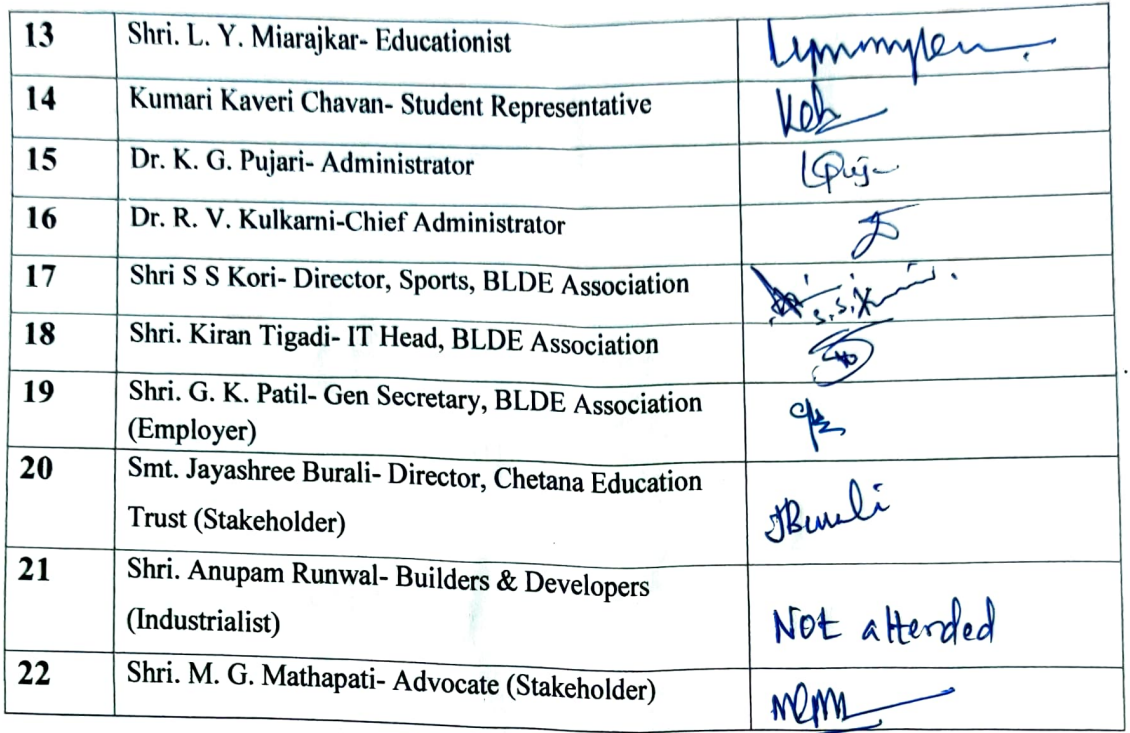 13 Shri. L. Y. Miarajkar- Educationist
14 Kumari Kaveri Chavan- Student Representative
15 Dr. K. G. Pujari- Administrator
16 Dr. R. V. Kulkarni-Chief Administrator
17 Shri S S Kori- Director, Sports, BLDE Association S.S.K
18 Shri. Kiran Tigadi- IT Head, BLDE Association
19 Shri. G. K. Patil- Gen Secretary, BLDE Association
(Employer)
20 Smt. Jayashree Burali- Director, Chetana Education
Trust (Stakeholder) JBurali
21 Shri. Anupam Runwal- Builders & Developers
(Industrialist) Not attended
22 Shri. M. G. Mathapati- Advocate (Stakeholder)